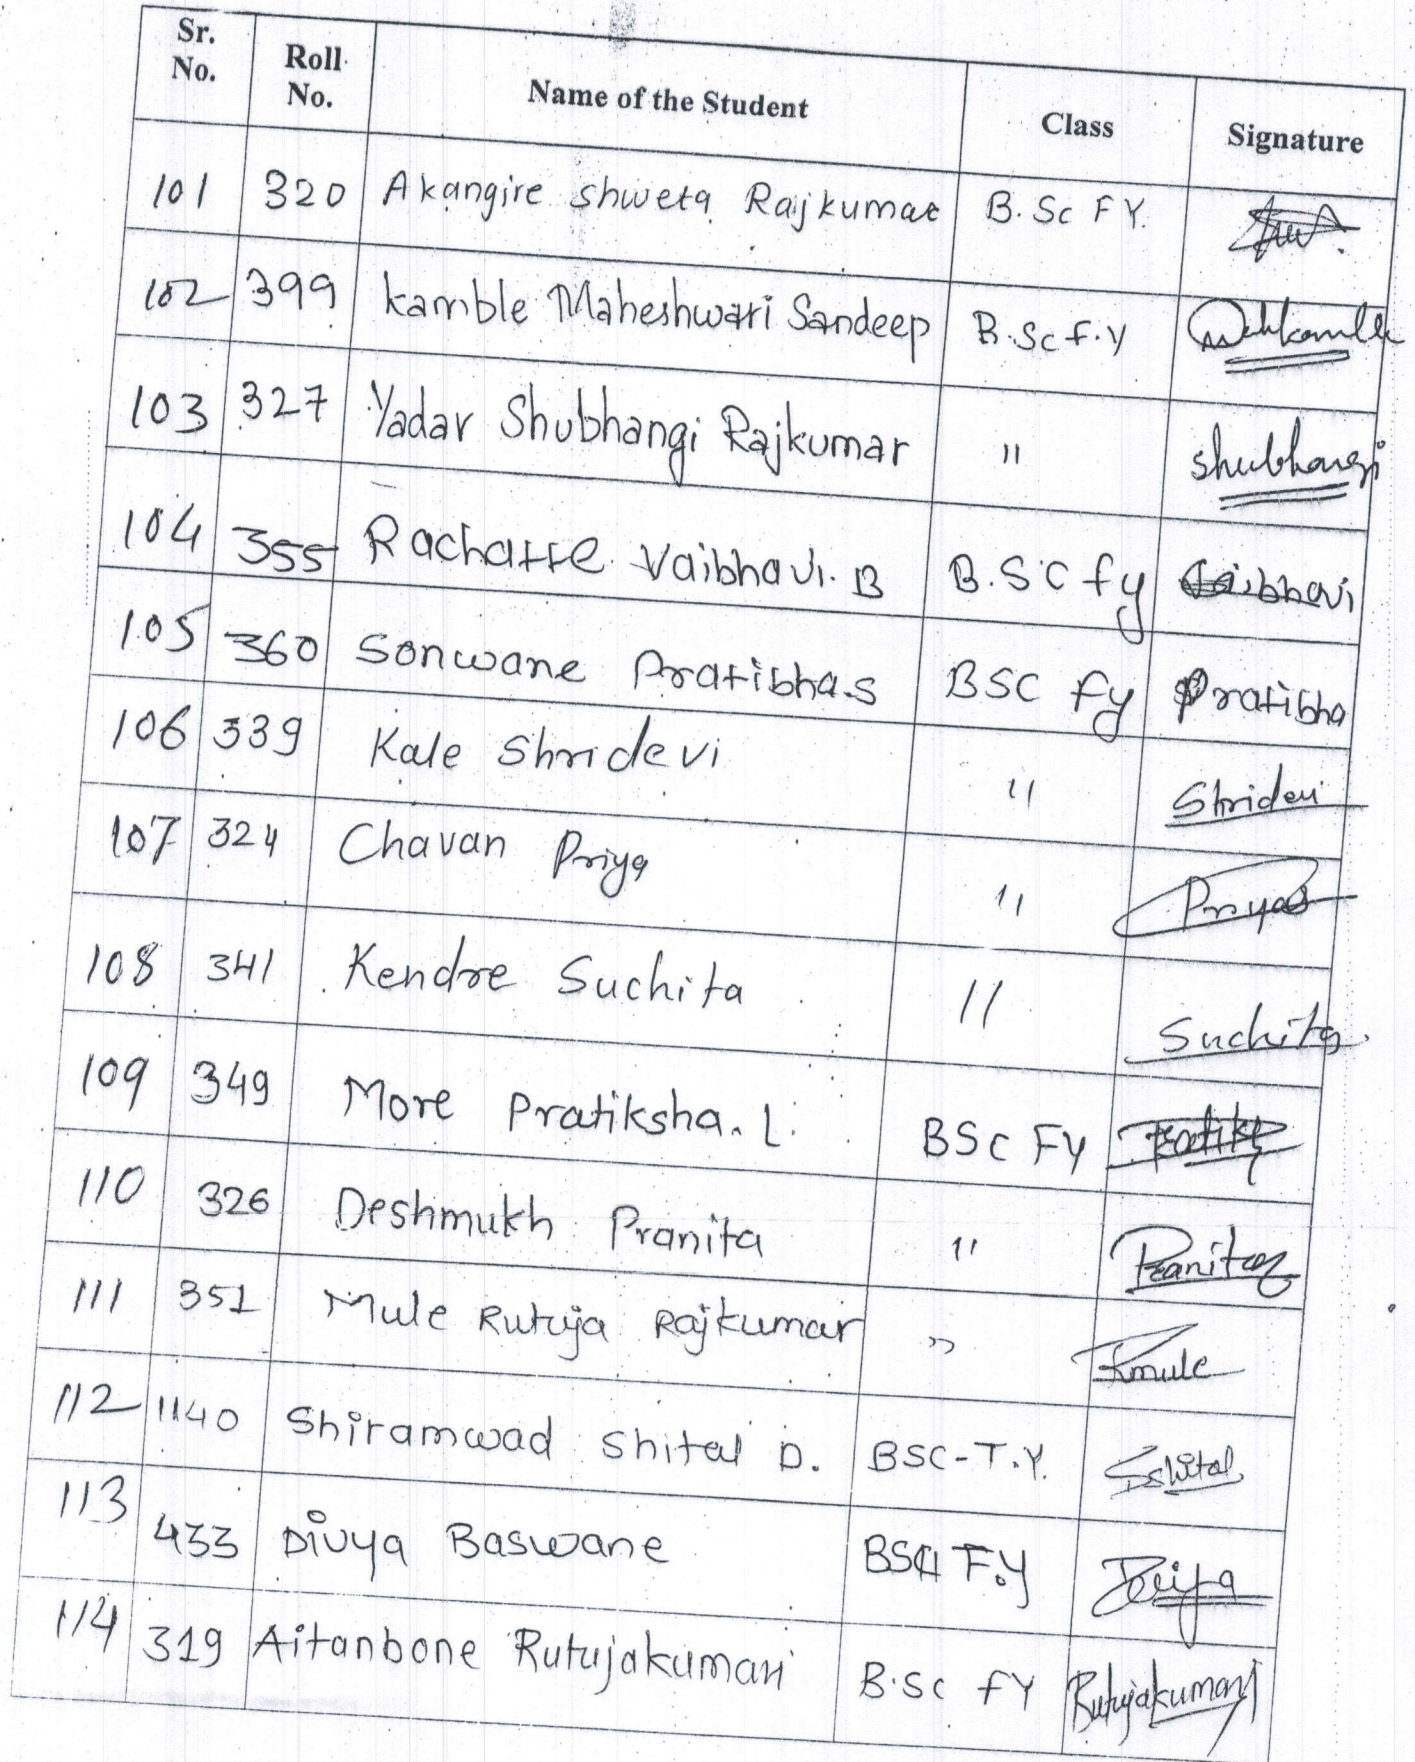 Sr. No. Roll No. Name of the Student Class Signature
101 320 Akangire Shweta Rajkumar B.Sc FY.
102 399 Kamble Maheshwari Sandeep B.Sc F.Y
103 327 Yadav Shubhangi Rajkumar " Shubhangi
104 355 Vaibhavi. B B.SC fy Vaibhavi
105 360 Sonwane Pratibha.S BSC fy Pratibha
106 339 Kale Shridevi " Shridevi
107 324 Chavan Priya " Priya
108 341 Kendre Suchita " Suchita
109 349 More Pratiksha. L. BSc FY
110 326 Deshmukh Pranita " Pranita
111 351 Mule Rutuja Rajkumar " Rmule
112 1140 Shiramwad Shital D. BSC-T.Y. Sshital
113 433 Divya Baswane F.Y Divya
114 319 Aitanbone Rutujakumari B.Sc FY Rutujakumari